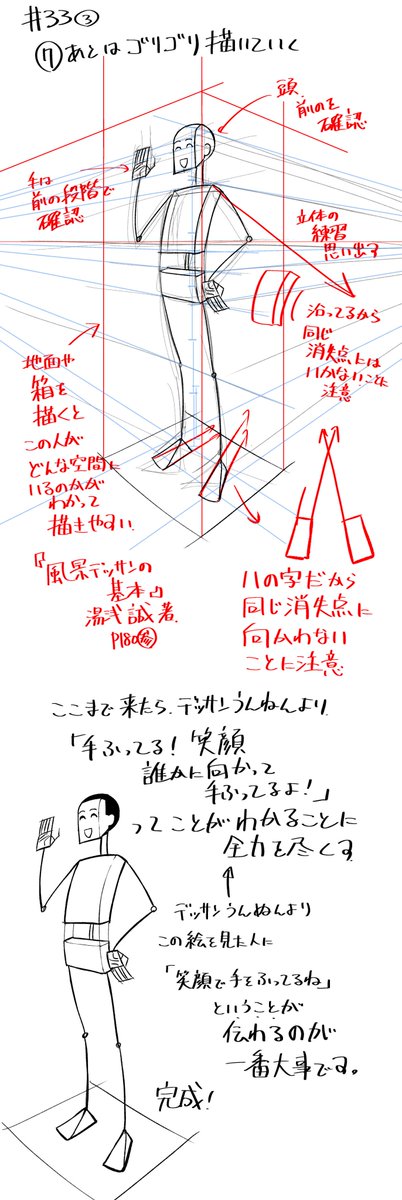 #33③
⑦あとはゴリゴリ描いていく
頭
前のを
確認
手は
前の段階で
確認
立体の
練習
思い出す
沿ってるから
同じ
消失点には
いかないことに
注意
地面や
箱を
描くと
この人が
どんな空間に
いるのかが
わかって
描きやすい
『風景デッサンの
基本』
湯浅誠著
P180参
ハの字だから
同じ消失点に
向かわない
ことに注意
ここまで来たら、デッサンうんぬんより
「手ふってる!笑顔
誰かに向かって
手ふってるよ!」
ってことがわかることに
全力を尽くす
デッサンうんぬんより
この絵を見た人に
「笑顔で手をふってるね」
ということが
伝わるのが
一番大事です。
完成!